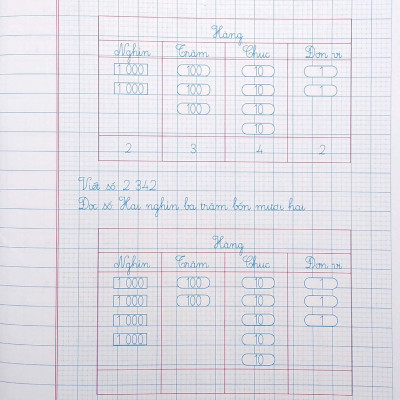 Hàng
Nghìn Trăm Chục Đơn vị
1 000 100 10 1
1 000 100 10 1
100 10
10
2 3 4 2
Viết số: 2 342
Đọc số: Hai nghìn ba trăm bốn mươi hai
Hàng
Nghìn Trăm Chục Đơn vị
1 000 100 10 1
1 000 100 10 1
1 000 10 1
1 000 10
10